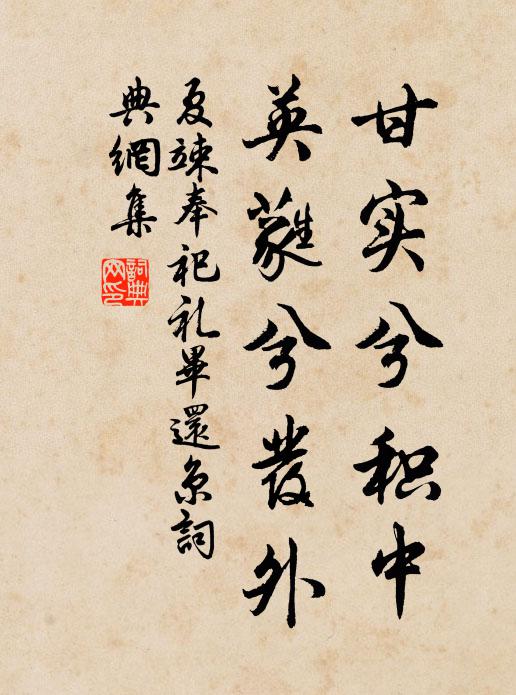 甘实兮积中
英蕤兮發外
夏竦奉祀礼畢還京詞
典網集
詞典网印